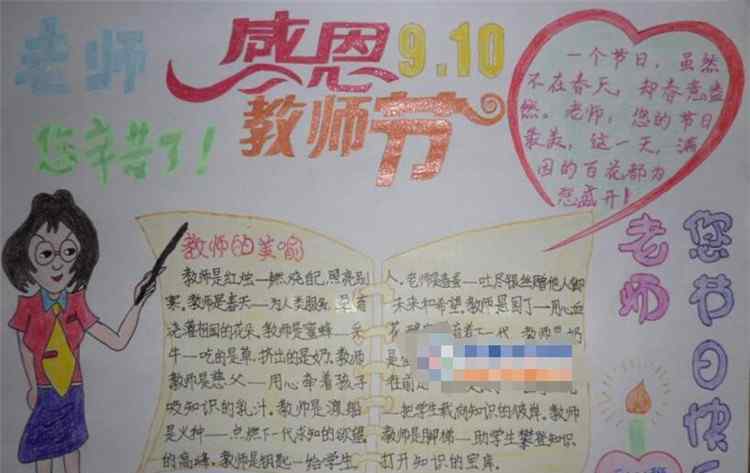 老师
您辛苦了！
感恩
9.10
教师节
一个节日，虽然
不在春天，却春意盎
然。老师，您的节日
最美，这一天，满
园的百花都为
您盛开！
教师的美喻
教师是红烛—燃烧自己，照亮别
教师是春天—为人类服务
浇灌祖国的花朵。教师是蜜蜂—采
牛—吃的是草，挤出的是奶。教师
教师是慈父—用心牵着孩子
吸知识的乳汁。教师是渡船
是火种—点燃下一代求知的欲望
的高峰。教师是钥匙—给学生
人。老师是春蚕—吐尽银丝赠他人
未来和希望。教师是园丁—用心血
一代。老师是奶
是
在前
—把学生载向知识的彼岸。教师
教师是脚梯—助学生攀登知识
打开知识的宝库。
老师
您节日快